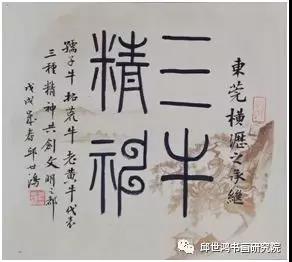 東莞横瀝之承繼
三牛
精神
孺子牛拓荒牛老黄牛代表
三種精神共創文明之都
戊戌春邱世鴻
邱世鸿书画研究院